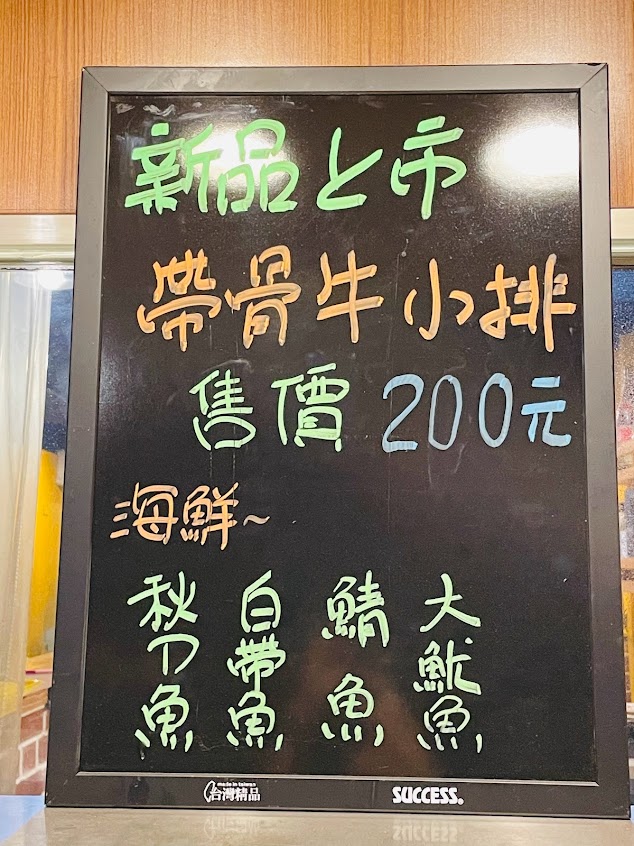 新品上市
帶骨牛小排
售價 200元
海鮮~
秋刀魚
白帶魚
鯖魚
大魷魚
made in taiwan
台灣精品
SUCCESS®